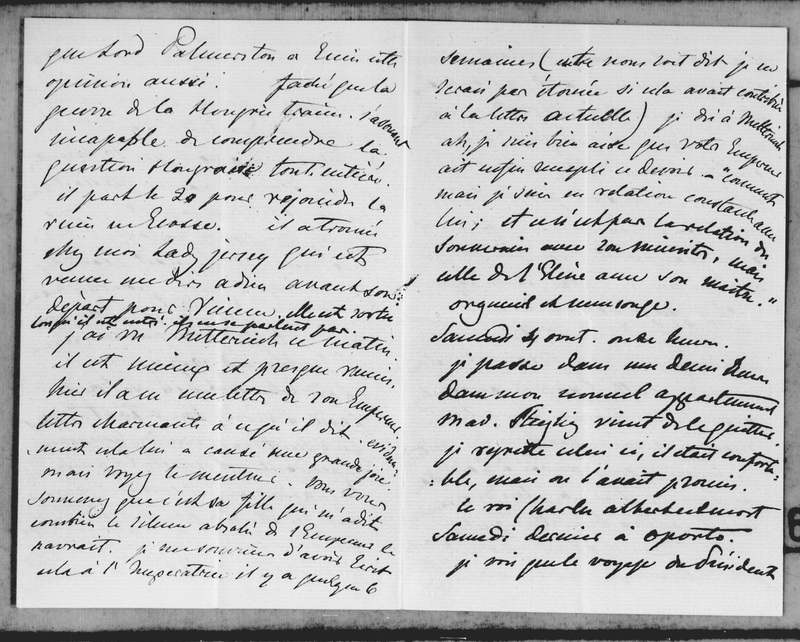 que Lord Palmerston a bien cette
opinion aussi. faché que la
guerre de la Hongrie traine. s'avouant
incapable de comprendre la
question Hongroise toute entière.
il part le 20 pour rejoindre la
reine en Ecosse. il a trouvé
chez moi Lady Jersey qui est
venue me dire adieu avant son
départ pour Vienne. Elle est sortie
lorsqu'il est entré. ils ne se parlent pas.
j'ai vu Metternich ce matin.
il est mieux et presque
hier il a eu une lettre de son Empereur.
lettre charmante à ce qu'il dit. evidem-
ment cela lui a causé une grande joie.
mais voyez le menteur. vous vous
souvenez que c'est sa fille qui m'a dit
combien le silence absolu de l'Empereur le
navrait. je me souviens d'avoir écrit
cela à l'Impératrice il y a quelques 6
semaines (entre nous soit dit je ne
serais pas étonnée si cela avait contribué
à la lettre actuelle) je dis à Metternich
ah, je suis bien aise que votre Empereur
ait enfin rempli ce devoir. "comment
mais je suis en relation constante avec
lui; et ce n'est pas la relation du
souverain avec son ministre, mais
celle de l'Elève avec son maitre."
orgueil et mensonge.
Samedi onze heures.
je passe dans une demi heure
dans mon nouvel appartement
mad. vient de le quitter.
je regrette celui ci, il était conforta-
ble, mais on l'avait promis.
le roi Charles albert est mort
Samedi dernier à oporto.
je vois que le voyage du Président
6